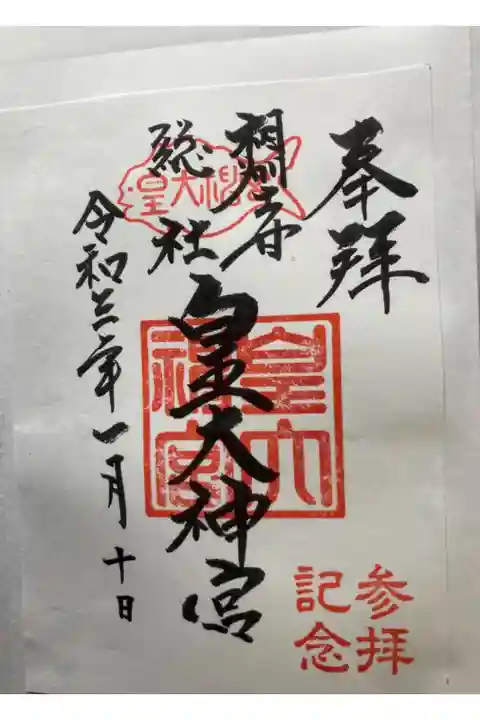 奉拝
相州三谷
総社
皇大神宮
令和三年一月十日
皇大神宮
参拝
記念